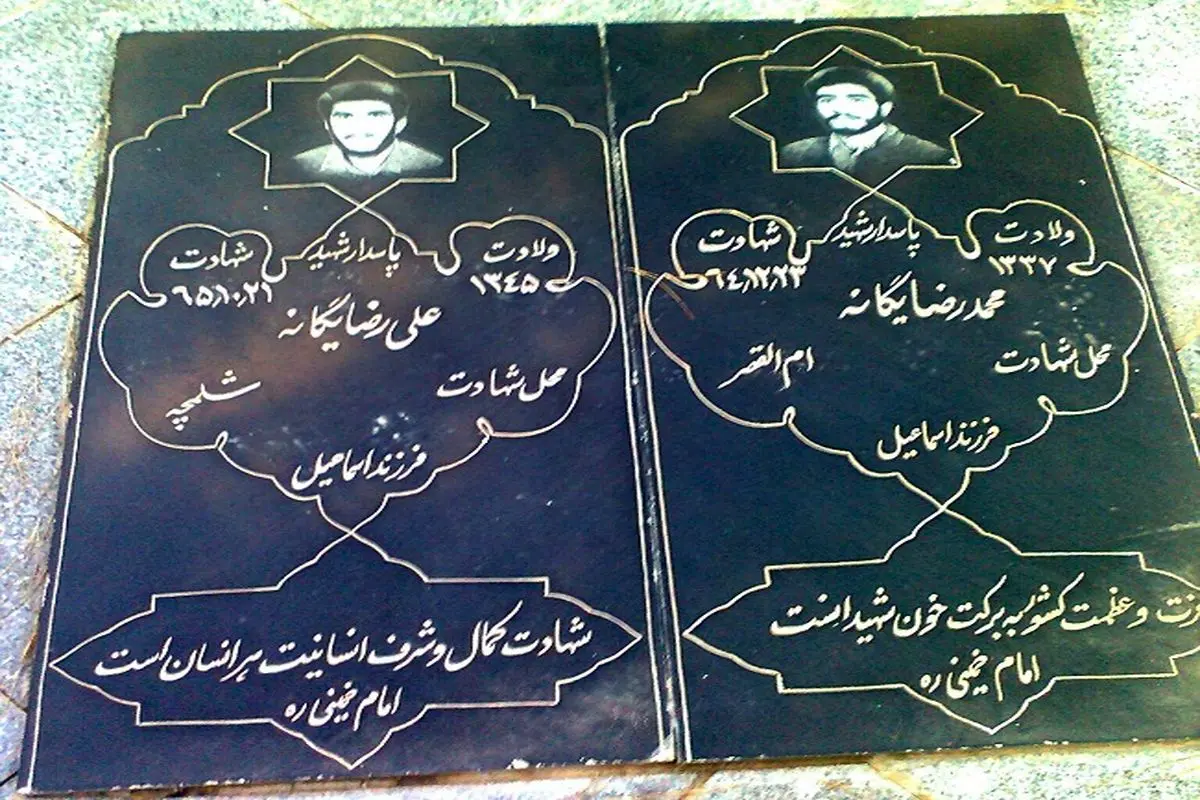 پاسدار شهید
ولادت
۱۳۳۷
شهادت
۶۴،۱۲،۲۳
محمدرضا یگانه
محل شهادت
ام القصر
فرزند اسماعیل
و عظمت کشور به برکت خون شهید است
امام خمینی ره
پاسدار شهید
ولادت
۱۳۴۵
شهادت
۶۵،۱۰،۲۱
علی رضا یگانه
محل شهادت
شلمچه
فرزند اسماعیل
شهادت کمال و شرف انسانیت هر انسان است
امام خمینی ره